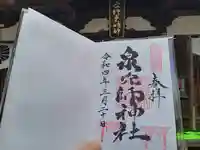 奉拝
泉穴師神社
令和四年三月二十日